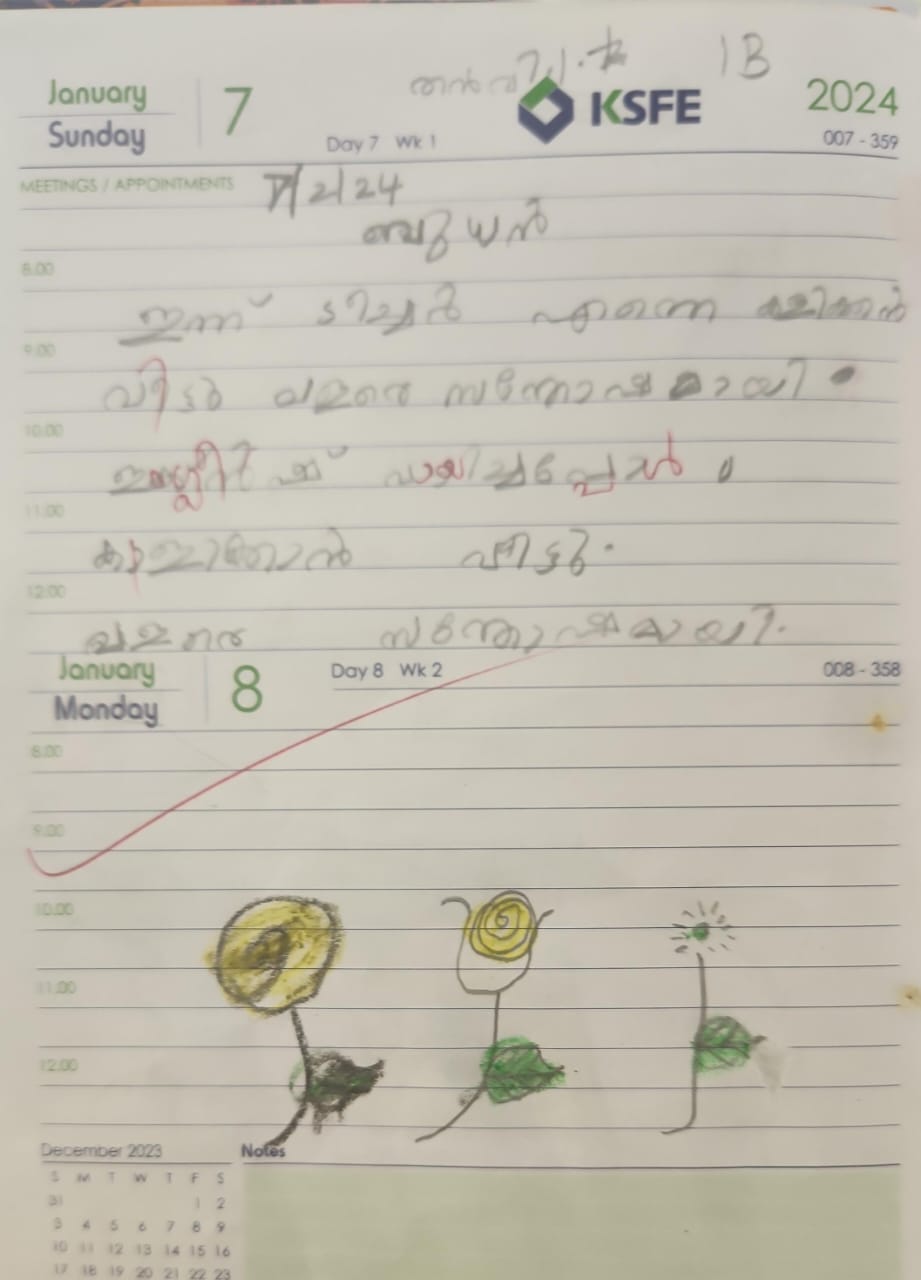 തൻവി 1 B
January
Sunday
7
Day 7 Wk 1
KSFE
2024
007 - 359
MEETINGS / APPOINTMENTS
7/2/24
ബുധൻ
8.00
ഇന്ന് ടീച്ചർ എന്നെ കളിക്കാൻ
9.00
വിട്ടു വളരെ സന്തോഷമായി.
10.00
ഇംഗ്ലീഷ് പഠിച്ചപ്പോൾ
11.00
കളിക്കാൻ വിട്ടു.
12.00
വളരെ സന്തോഷമായി.
January
Monday
8
Day 8 Wk 2
008 - 358
8.00
9.00
10.00
11.00
12.00
December 2023
Notes
S M T W T F S
31 1 2
3 4 5 6 7 8 9
10 11 12 13 14 15 16
17 18 19 20 21 22 23